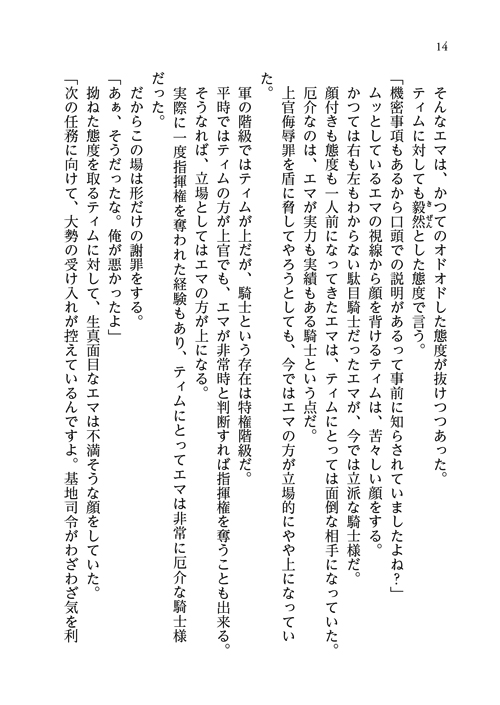 14
そんなエマは、かつてのオドオドした態度が抜けつつあった。
ティムに対しても毅然とした態度で言う。
きぜん
「機密事項もあるから口頭での説明があるって事前に知らされていましたよね？」
ムッとしているエマの視線から顔を背けるティムは、苦々しい顔をする。
かつては右も左もわからない駄目騎士だったエマが、今では立派な騎士様だ。
顔付きも態度も一人前になってきたエマは、ティムにとっては面倒な相手になっていた。
厄介なのは、エマが実力も実績もある騎士という点だ。
上官侮辱罪を盾に脅してやろうとしても、今ではエマの方が立場的にやや上になってい
た。
軍の階級ではティムが上だが、騎士という存在は特権階級だ。
平時ではティムの方が上官でも、エマが非常時と判断すれば指揮権を奪うことも出来る。
そうなれば、立場としてはエマの方が上になる。
実際に一度指揮権を奪われた経験もあり、ティムにとってエマは非常に厄介な騎士様
だった。
だからこの場は形だけの謝罪をする。
「あぁ、そうだったな。俺が悪かったよ」
拗ねた態度を取るティムに対して、生真面目なエマは不満そうな顔をしていた。
「次の任務に向けて、大勢の受け入れが控えているんですよ。基地司令がわざわざ気を利